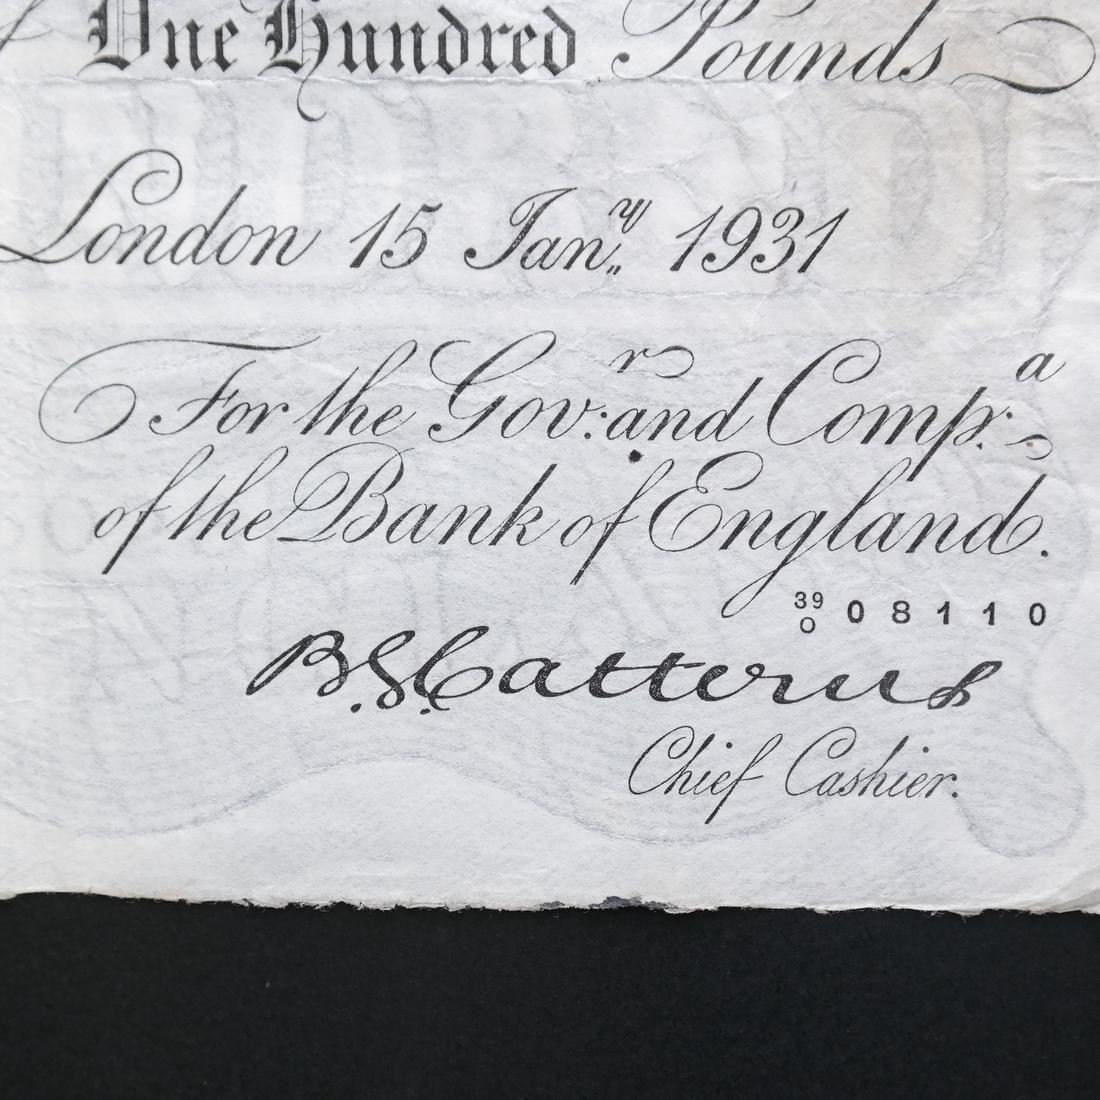 One Hundred Pounds
London 15 Jan.ʸ 1931
For the Gov:ʳ and Comp.ᵃ
of the Bank of England.
39/O 08110
B.G.Catterns
Chief Cashier.